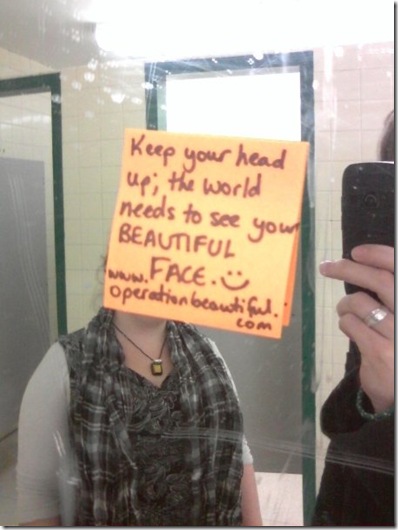 Keep your head
up; the world
needs to see your
BEAUTIFUL
FACE. :)
www.
operationbeautiful.
com